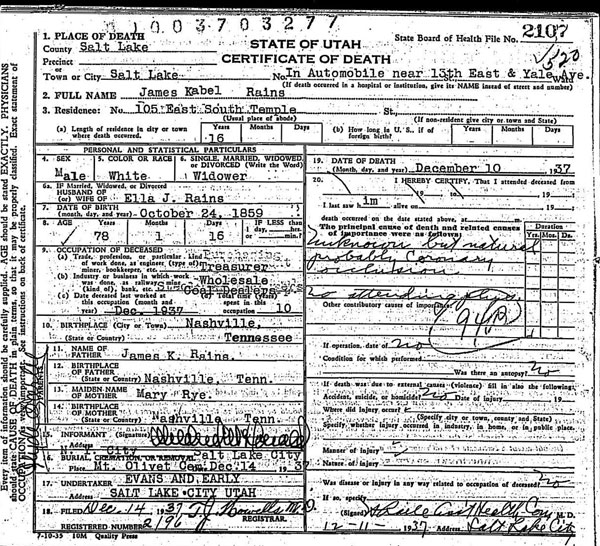 1003703277
1. PLACE OF DEATH
County Salt Lake
Precinct
Town or City Salt Lake
STATE OF UTAH
CERTIFICATE OF DEATH
State Board of Health File No. 2107
No. In Automobile near 13th East & Yale Ave. Ward
(If death occurred in a hospital or institution, give its NAME instead of street and number)
2. FULL NAME James Kabel Rains
3. Residence: No. 105 East South Temple St.,
(Usual place of abode) (If non-resident give city or town and State)
(a) Length of residence in city or town where death occurred. 16 Years Months Days
(b) How long in U. S., if of foreign birth? Years Months Days
PERSONAL AND STATISTICAL PARTICULARS
4. SEX Male
5. COLOR OR RACE White
6. SINGLE, MARRIED, WIDOWED, or DIVORCED (Write the Word) Widower
6a. If Married, Widowed, or Divorced
HUSBAND OF
(or) WIFE OF Ella J. Rains
7. DATE OF BIRTH
(month, day, and year) October 24, 1859
8. AGE Years 78 Months 1 Days 16 IF LESS than
1 day, hrs.
or min.
9. OCCUPATION OF DECEASED
(a) Trade, profession, or particular kind of work done, as engineer, (type of) miner, bookkeeper, etc. Treasurer
(b) Industry or business in which work was done, as railway, mine, (kind of), bank, etc. Wholesale
Coal Dealers
(c) Date deceased last worked at this occupation (month and year) Dec. 1937
(e) Total time (years) spent in this occupation 10
10. BIRTHPLACE (City or Town) Nashville,
(State or Country) Tennessee
11. NAME OF FATHER James K. Rains.
12. BIRTHPLACE OF FATHER
(State or Country) Nashville, Tenn.
13. MAIDEN NAME OF MOTHER Mary Rye.
14. BIRTHPLACE OF MOTHER
(State or Country) Nashville Tenn.
15. INFORMANT (Signature)
Address City
16. BURIAL, CREMATION OR REMOVAL Salt Lake City
Place Mt. Olivet Cem. Dec. 14 1937
17. UNDERTAKER EVANS AND EARLY
Address SALT LAKE CITY UTAH
18. FILED Dec 14 1937
REGISTRAR.
REGISTERED NUMBER 2196
7-10-35 10M Quality Press
19. DATE OF DEATH
(Month, day, and year) December 10 1937
20. I HEREBY CERTIFY, That I attended deceased
from 19 to 19
I last saw him alive on 19
death occurred on the date stated above, at m.
The principal cause of death and related causes of importance were as follows: Duration
Yrs. Mo. Ds.
Unknown but natural
probably Coronary
occlusion
no attending phys.
Other contributory causes of importance:
94B
If operation, date of no
Condition for which performed
Was there an autopsy? no
If death was due to external causes (violence) fill in also the following:
Accident, suicide, or homicide? no Date of injury 19
Where did injury occur?
(Specify city or town, county and State)
Specify whether injury occurred in industry, in home, or in public place.
Manner of injury
Nature of injury
Was disease or injury in any way related to occupation of deceased? no
If so, specify
(Signed) M. D.
12-11-1937 Address Salt Lake City